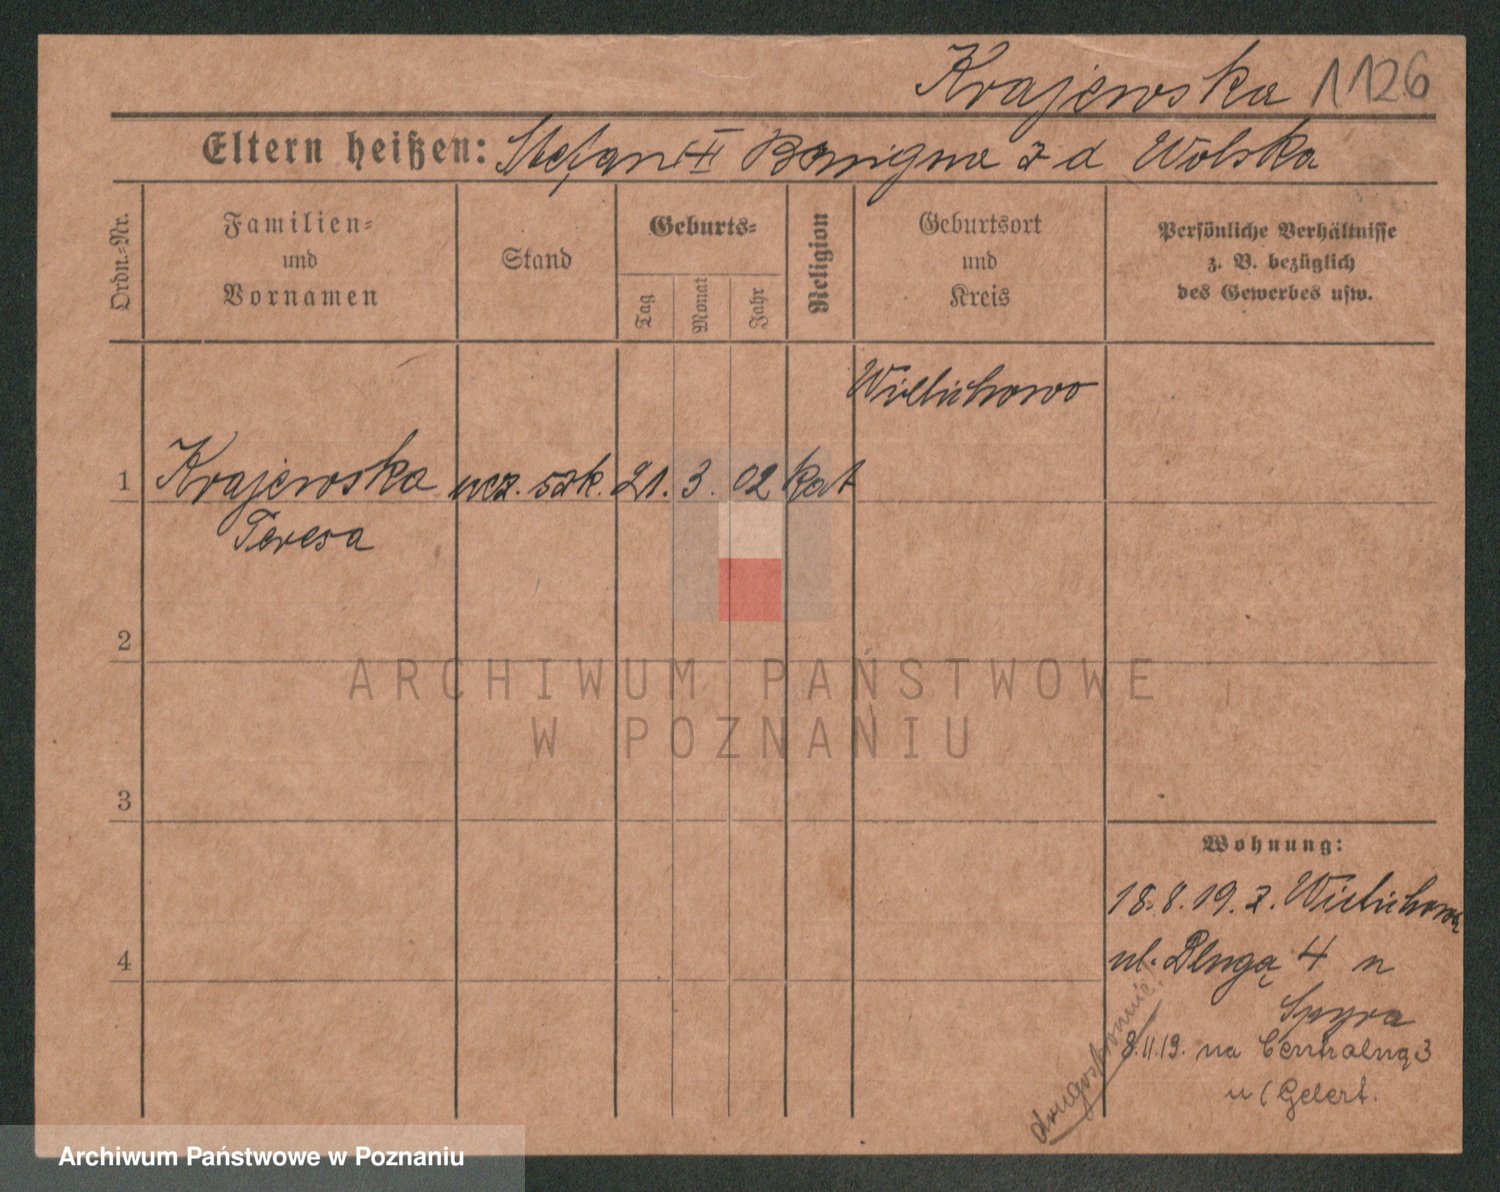 Krajewska 1126
Eltern heißen: Stefan i II Benigna z d Wolska
Ordn.-Nr.
Familien- und Vornamen
Stand
Geburts-
Tag
Monat
Jahr
Religion
Geburtsort und Kreis
Persönliche Verhältnisse
z. B. bezüglich
des Gewerbes usw.
Wielichowo
1 Krajewska ucz. szk. 21. 3. 02 kat
Teresa
2
ARCHIWUM PAŃSTWOWE
W POZNANIU
3
Wohnung:
18.8.19. z. Wielichowa
4
ul. Długą 4 u
Spyra
8.11.19. na Centralną 3
u Gelert.
drugostronnie.
Archiwum Państwowe w Poznaniu